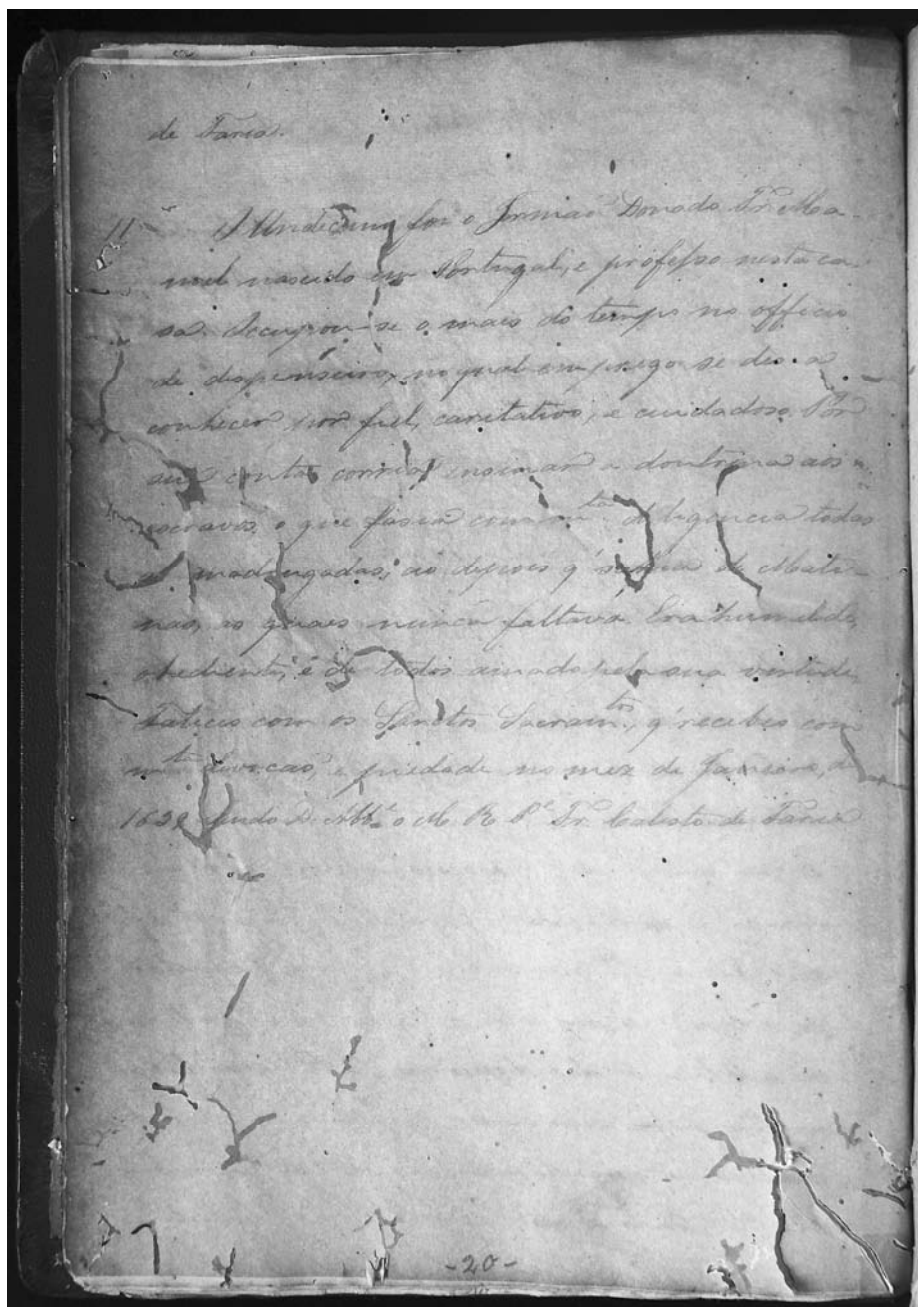 de Faria.
11 O Undecimo foi o Irmaõ Donado Fr. Ma-
noel nascido em Portugal, e professo nesta ca-
sa. Occupou-se o mais do tempo no officio
de dispenseiro, no qual emprego se deo a
conhecer por fiel, caritativo, e cuidadoso. Por
sua conta corria ensinar a doutrina aos
escravos, o que fasia com m.ta deligencia todas
as madrugadas, ao depois q' sahia de Mati-
nas, as quaes nunca faltava. Era humilde,
obediente, e de todos amado pela sua virtude.
Faleceo com os Sanctos Sacram.tos, q' recebeo com
m.ta devocaõ, e piedade no mez de Janeiro, de
sendo D. Abb.e o M. R. P.e Fr. Calisto de Faria
-20-